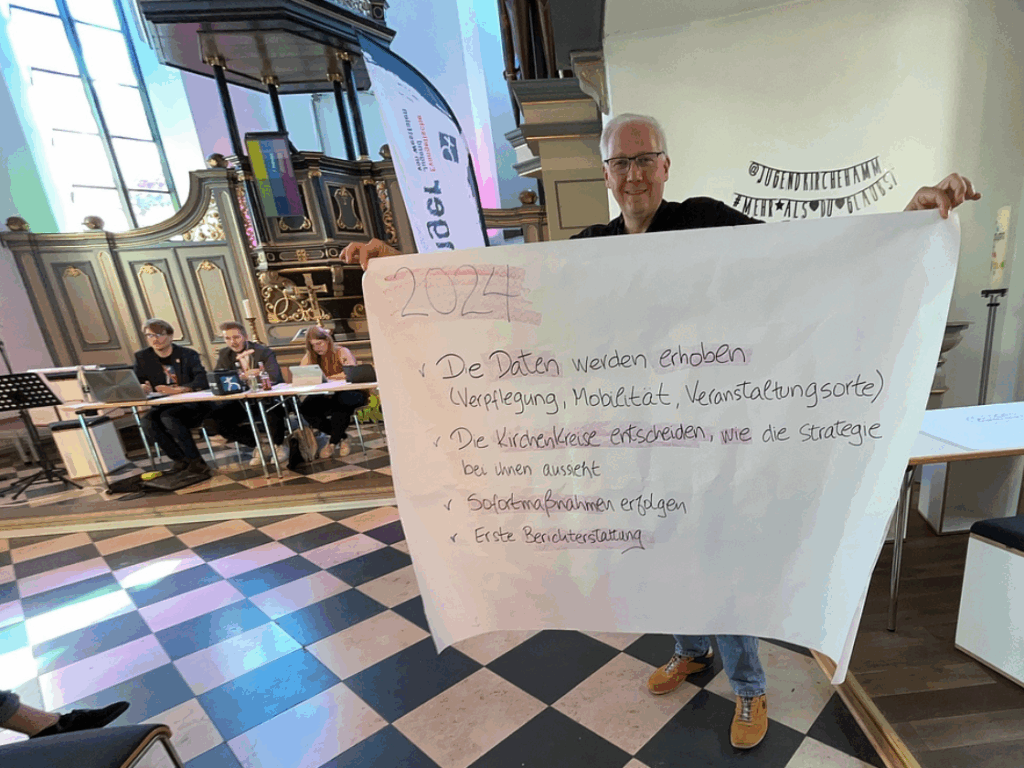 @JUGENDKIRCHEHAMM
#MEHR★ALS♥DU♥GLAUBST
2024
✓ Die Daten werden erhoben
(Verpflegung, Mobilität, Veranstaltungsorte)
✓ Die Kirchenkreise entscheiden, wie die Strategie
bei ihnen aussieht
✓ Sofortmaßnahmen erfolgen
✓ Erste Berichterstattung